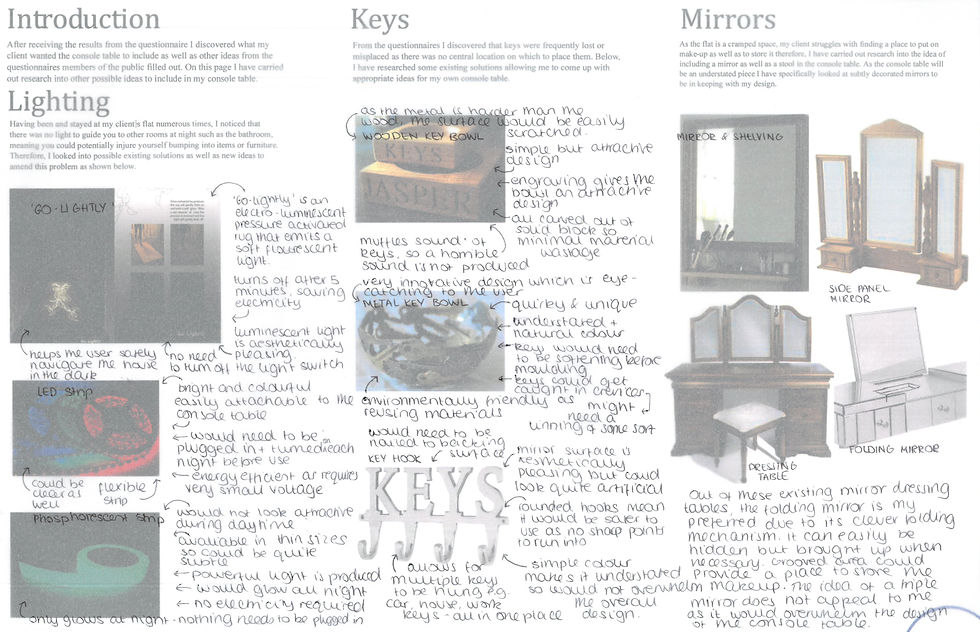 Introduction
After receiving the results from the questionnaire I discovered what my
client wanted the console table to include as well as other ideas from the
questionnaires members of the public filled out. On this page I have carried
out research into other possible ideas to include in my console table.
Lighting
Having been and stayed at my client's flat numerous times, I noticed that
there was no light to guide you to other rooms at night such as the bathroom,
meaning you could potentially injure yourself bumping into items or furniture.
Therefore, I looked into possible existing solutions as well as new ideas to
amend this problem as shown below.
'GO-LIGHTLY'
'Go-lightly' is an
electro-luminescent
pressure activated
rug that emits a
soft flourescent
light.
turns off after 5
minutes, saving
electricity
luminescent light
is aesthetically
pleasing.
helps the user safely
navigate the house
in the dark
no need
to turn off the light switch
LED Strip
bright and colourful
easily attachable to the
console table
would need to be
plugged in + turned on each
night before use
energy efficient as requires
very small voltage
could be
clear as
well
flexible
strip
Phosphorescent Strip
would not look attractive
during daytime
available in thin sizes
so could be quite
subtle
powerful light is produced
would glow all night
no electricity required
only glows at night - nothing needs to be plugged in
Keys
From the questionnaires I discovered that keys were frequently lost or
misplaced as there was no central location on which to place them. Below,
I have researched some existing solutions allowing me to come up with
appropriate ideas for my own console table.
as the metal is harder than the
wood, the surface would be easily
scratched.
WOODEN KEY BOWL
KEYS
JASPER
simple but attractive
design
engraving gives the
bowl an attractive
design
all carved out of
solid block so
minimal material
wastage
muffles sound of
keys, so a horrible
sound is not produced
very innovative design which is eye-
catching to the user
METAL KEY BOWL
quirky & unique
understated +
natural colour
key would need
to be softening before
moulding
keys could get
caught in crevices
might
need a
lining of some sort
environmentally friendly as
reusing materials
would need to be
nailed to backing
surface
KEY HOOK
KEYS
mirror surface is
aesthetically
pleasing but could
look quite artificial
rounded hooks mean
it would be safer to
use as no sharp points
to run into
allows for
multiple keys
to be hung eg.
car, house, work
keys - all in one place
simple colour
makes it understated
so would not overwhelm
the overall
design.
Mirrors
As the flat is a cramped space, my client struggles with finding a place to put on
make-up as well as to store it therefore, I have carried out research into the idea of
including a mirror as well as a stool in the console table. As the console table will
be an understated piece I have specifically looked at subtly decorated mirrors to
be in keeping with my design.
MIRROR & SHELVING
SIDE PANEL
MIRROR
DRESSING
TABLE
FOLDING MIRROR
Out of these existing mirror dressing
tables, the folding mirror is my
preferred due to its clever folding
mechanism. It can easily be
hidden but brought up when
necessary. Grooved area could
provide a place to store the
makeup. The idea of a triple
mirror does not appeal to me
as it would overwhelm the design
of the console table.